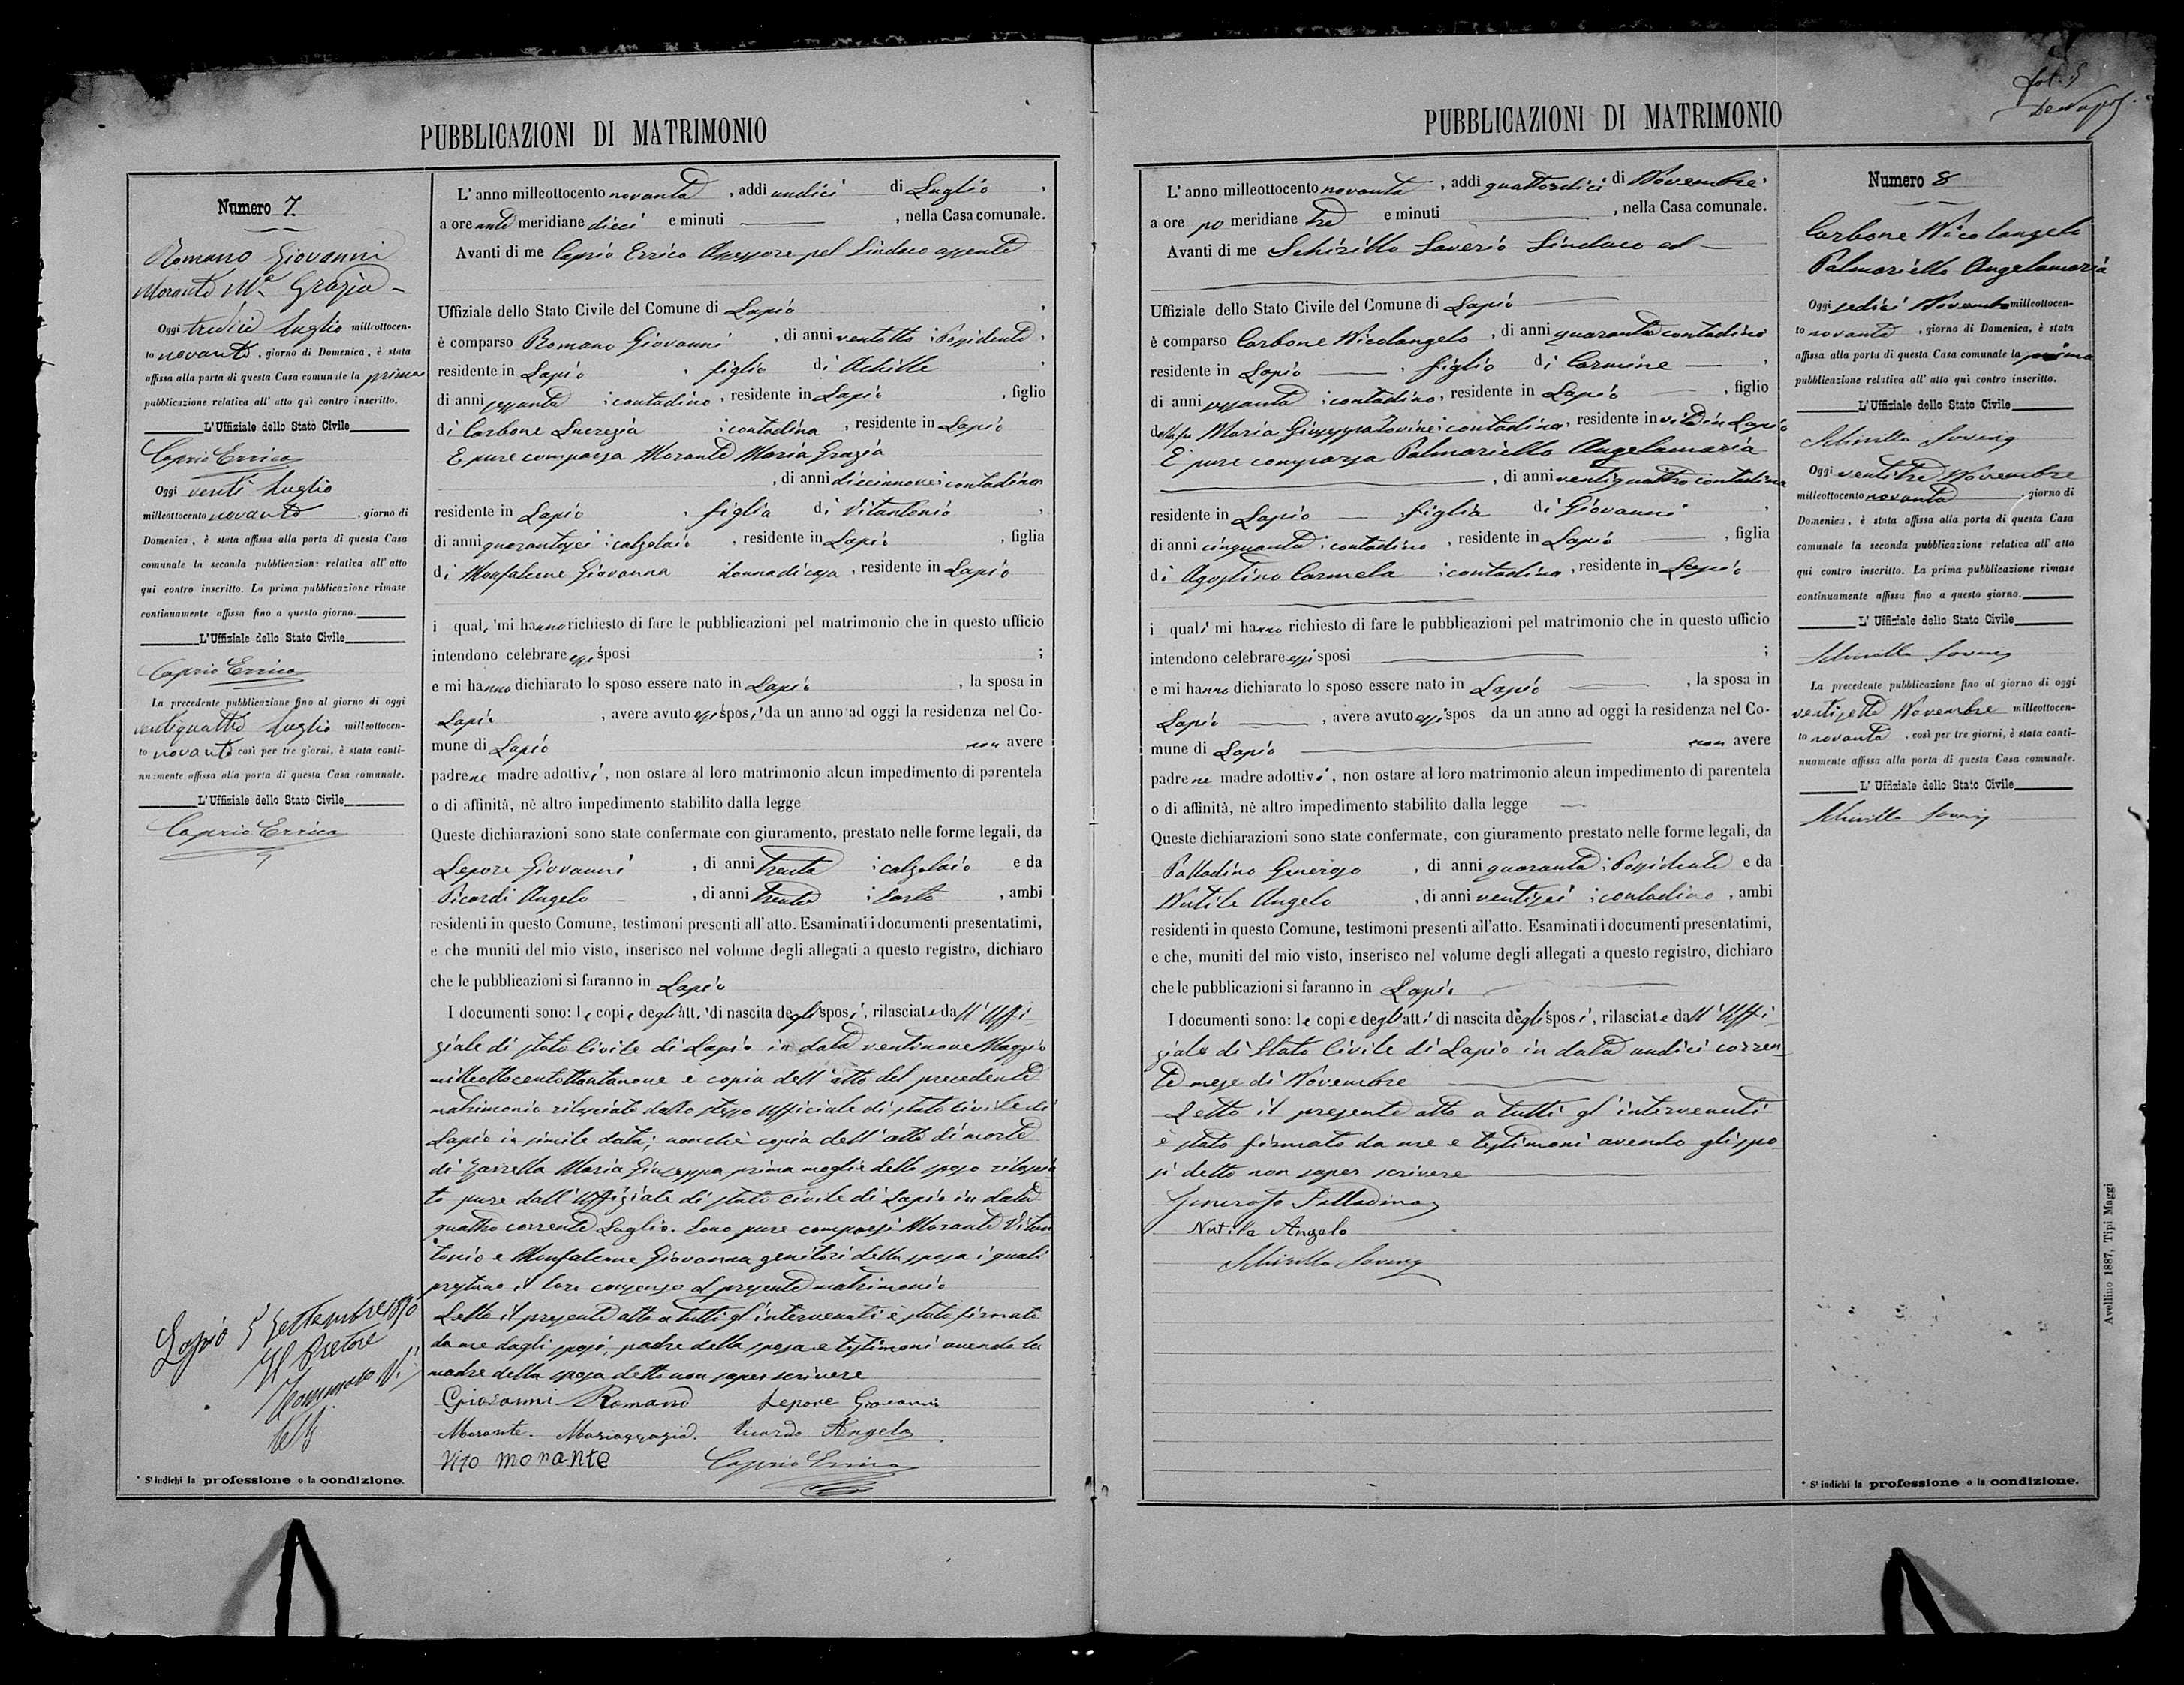 PUBBLICAZIONI DI MATRIMONIO
Numero 7.
Romano Giovanni
Morante Mª Grazia
Oggi tredici Luglio milleottocen-
to novanta, giorno di Domenica, è stata
affissa alla porta di questa Casa comunale la prima
pubblicazione relativa all' atto quì contro inscritto.
L'Uffiziale dello Stato Civile
Caprio Errico
Oggi venti Luglio
milleottocento novanta, giorno di
Domenica, è stata affissa alla porta di questa Casa
comunale la seconda pubblicazione relativa all' atto
qui contro inscritto. La prima pubblicazione rimase
continuamente affissa fino a questo giorno.
L'Uffiziale dello Stato Civile
Caprio Errico
La precedente pubblicazione fino al giorno di oggi
ventiquattro Luglio milleottocen-
to novanta così per tre giorni, è stata conti-
nuamente affissa alla porta di questa Casa comunale.
L'Uffiziale dello Stato Civile
Caprio Errico
Lapio 5 Settembre 1890
Il Pretore
* Si indichi la professione o la condizione.
L' anno milleottocento novanta, addì undici di Luglio,
a ore ante meridiane dieci e minuti, nella Casa comunale.
Avanti di me Caprio Errico Assessore pel Sindaco assente
Uffiziale dello Stato Civile del Comune di Lapio,
è comparso Romano Giovanni, di anni ventotto; Possidente,
residente in Lapio, figlio di Achille,
di anni sessanta; contadino, residente in Lapio, figlio
di Carbone Lucrezia; contadina, residente in Lapio
E pure comparsa Morante Maria Grazia
, di anni diecinnove; contadina
residente in Lapio, figlia di Vitantonio,
di anni quarantasei; calzolaio, residente in Lapio, figlia
di Monfalcone Giovanna; donna di casa, residente in Lapio
i quali mi hanno richiesto di fare le pubblicazioni pel matrimonio che in questo ufficio
intendono celebrare essi sposi;
e mi hanno dichiarato lo sposo essere nato in Lapio, la sposa in
Lapio, avere avuto essi sposi da un anno ad oggi la residenza nel Co-
mune di Lapio non avere
padre ne madre adottivi, non ostare al loro matrimonio alcun impedimento di parentela
o di affinità, nè altro impedimento stabilito dalla legge
Queste dichiarazioni sono state confermate con giuramento, prestato nelle forme legali, da
Lepore Giovanni, di anni trenta; calzolaio e da
Picardi Angelo, di anni trenta; sarto, ambi
residenti in questo Comune, testimoni presenti all'atto. Esaminati i documenti presentatimi,
e che muniti del mio visto, inserisco nel volume degli allegati a questo registro, dichiaro
che le pubblicazioni si faranno in Lapio
I documenti sono: le copie degli atti di nascita degli sposi, rilasciate dall'Uffi-
ziale di stato Civile di Lapio in data ventinove Maggio
milleottocentottantanove e copia dell'atto del precedente
matrimonio rilasciato dallo stesso Ufficiale di stato civile di
Lapio in simile data; nonchè copia dell'atto di morte
di Zarrella Maria Giuseppa prima moglie dello sposo rilascia
to pure dall'Uffiziale di stato civile di Lapio in data
quattro corrente Luglio. Sono pure comparsi Morante Vitan
tonio e Monfalcone Giovanna genitori della sposa i quali
prestano il loro consenso al presente matrimonio
Letto il presente atto a tutti gl'intervenuti è stato firmato
da me dagli sposi, padre della sposa e testimoni avendo la
madre della sposa detto non saper scrivere
Giovanni Romano Lepore Giovanni
Morante Mariagrazia Picardo Angelo
Vito Morante Caprio Errico
PUBBLICAZIONI DI MATRIMONIO
L' anno milleottocento novanta, addì quattordici di Novembre,
a ore po meridiane tre e minuti, nella Casa comunale.
Avanti di me Schirillo Saverio Sindaco ed
Uffiziale dello Stato Civile del Comune di Lapio
è comparso Carbone Nicolangelo, di anni quaranta contadino
residente in Lapio, figlio di Carmine,
di anni sessanta; contadino, residente in Lapio, figlio
della fu Maria Giuseppa Iovine; contadina, residente in vita in Lapio
E' pure comparsa Palmariello Angelamaria
, di anni ventiquattro contadina
residente in Lapio figlia di Giovanni,
di anni cinquanta; contadino, residente in Lapio, figlia
di Agostino Carmela; contadina, residente in Lapio
i quali mi hanno richiesto di fare le pubblicazioni pel matrimonio che in questo ufficio
intendono celebrare essi sposi;
e mi hanno dichiarato lo sposo essere nato in Lapio, la sposa in
Lapio, avere avuto essi spos da un anno ad oggi la residenza nel Co-
mune di Lapio non avere
padre ne madre adottivi, non ostare al loro matrimonio alcun impedimento di parentela
o di affinità, nè altro impedimento stabilito dalla legge
Queste dichiarazioni sono state confermate, con giuramento prestato nelle forme legali, da
Palladino Generoso, di anni quaranta; Possidente e da
Nutile Angelo, di anni ventisei; contadino, ambi
residenti in questo Comune, testimoni presenti all'atto. Esaminati i documenti presentatimi,
e che, muniti del mio visto, inserisco nel volume degli allegati a questo registro, dichiaro
che le pubblicazioni si faranno in Lapio
I documenti sono: le copie degli atti di nascita degli sposi, rilasciate dall'Uffi-
ziale di Stato Civile di Lapio in data undici corren-
te mese di Novembre
Letto il presente atto a tutti gl'intervenuti
è stato firmato da me e testimoni avendo gli spo
si detto non saper scrivere
Generoso Palladino
Nutile Angelo
Schirillo Saverio
Numero 8
Carbone Nicolangelo
Palmariello Angelamaria
Oggi sedici Novembre milleottocen-
to novanta, giorno di Domenica, è stata
affissa alla porta di questa Casa comunale la prima
pubblicazione relativa all' atto quì contro inscritto.
L'Uffiziale dello Stato Civile
Schirillo Saverio
Oggi ventitre Novembre
milleottocento novanta, giorno di
Domenica, è stata affissa alla porta di questa Casa
comunale la seconda pubblicazione relativa all' atto
qui contro inscritto. La prima pubblicazione rimase
continuamente affissa fino a questo giorno.
L' Uffiziale dello Stato Civile
Schirillo Saverio
La precedente pubblicazione fino al giorno di oggi
ventisette Novembre milleottocen-
to novanta, così per tre giorni, è stata conti-
nuamente affissa alla porta di questa Casa comunale.
L' Uffiziale dello Stato Civile
Schirillo Saverio
* Si indichi la professione o la condizione.
Avellino 1887, Tipi Maggi